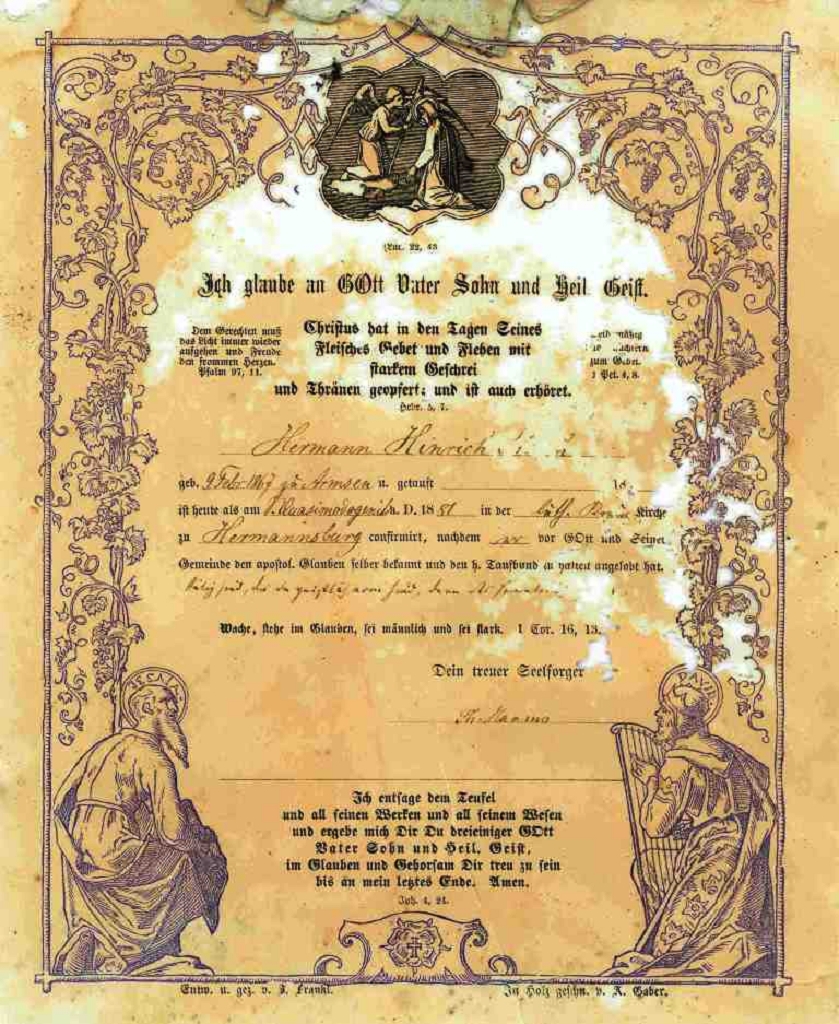 Luc. 22, 43
Ich glaube an GOtt Vater Sohn und Heil. Geist.
Dem Gerechten muß
das Licht immer wieder
aufgehen und Freude
den frommen Herzen.
Psalm 97, 11.
Christus hat in den Tagen Seines
Fleisches Gebet und Flehen mit
starkem Geschrei
und Thränen geopfert; und ist auch erhöret.
Hebr. 5, 7.
mäßig
zum Gebet.
1 Pet. 4, 8.
Hermann Hinrich
geb. 9 Febr 1867 zu Armsen u. getauft 18
ist heute als am Quasimodogenits. D. 1881 in der luth. Kirche
zu Hermannsburg confirmirt, nachdem er vor GOtt und Seiner
Gemeinde den apostol. Glauben selber bekannt und den h. Taufbund zu halten angelobt hat.
Selig sind, die da geistlich arm sind, denn
Wache, stehe im Glauben, sei männlich und sei stark. 1 Cor. 16, 13.
Dein treuer Seelsorger
Th. Harms
ESAIA
DAVID
Ich entsage dem Teufel
und all seinen Werken und all seinem Wesen
und ergebe mich Dir Du dreieiniger GOtt
Vater Sohn und Heil. Geist,
im Glauben und Gehorsam Dir treu zu sein
bis an mein letztes Ende. Amen.
Joh. 4, 24.
Entw. u. gez. v. J. Frankl.
In Holz geschn. v. A. Gaber.